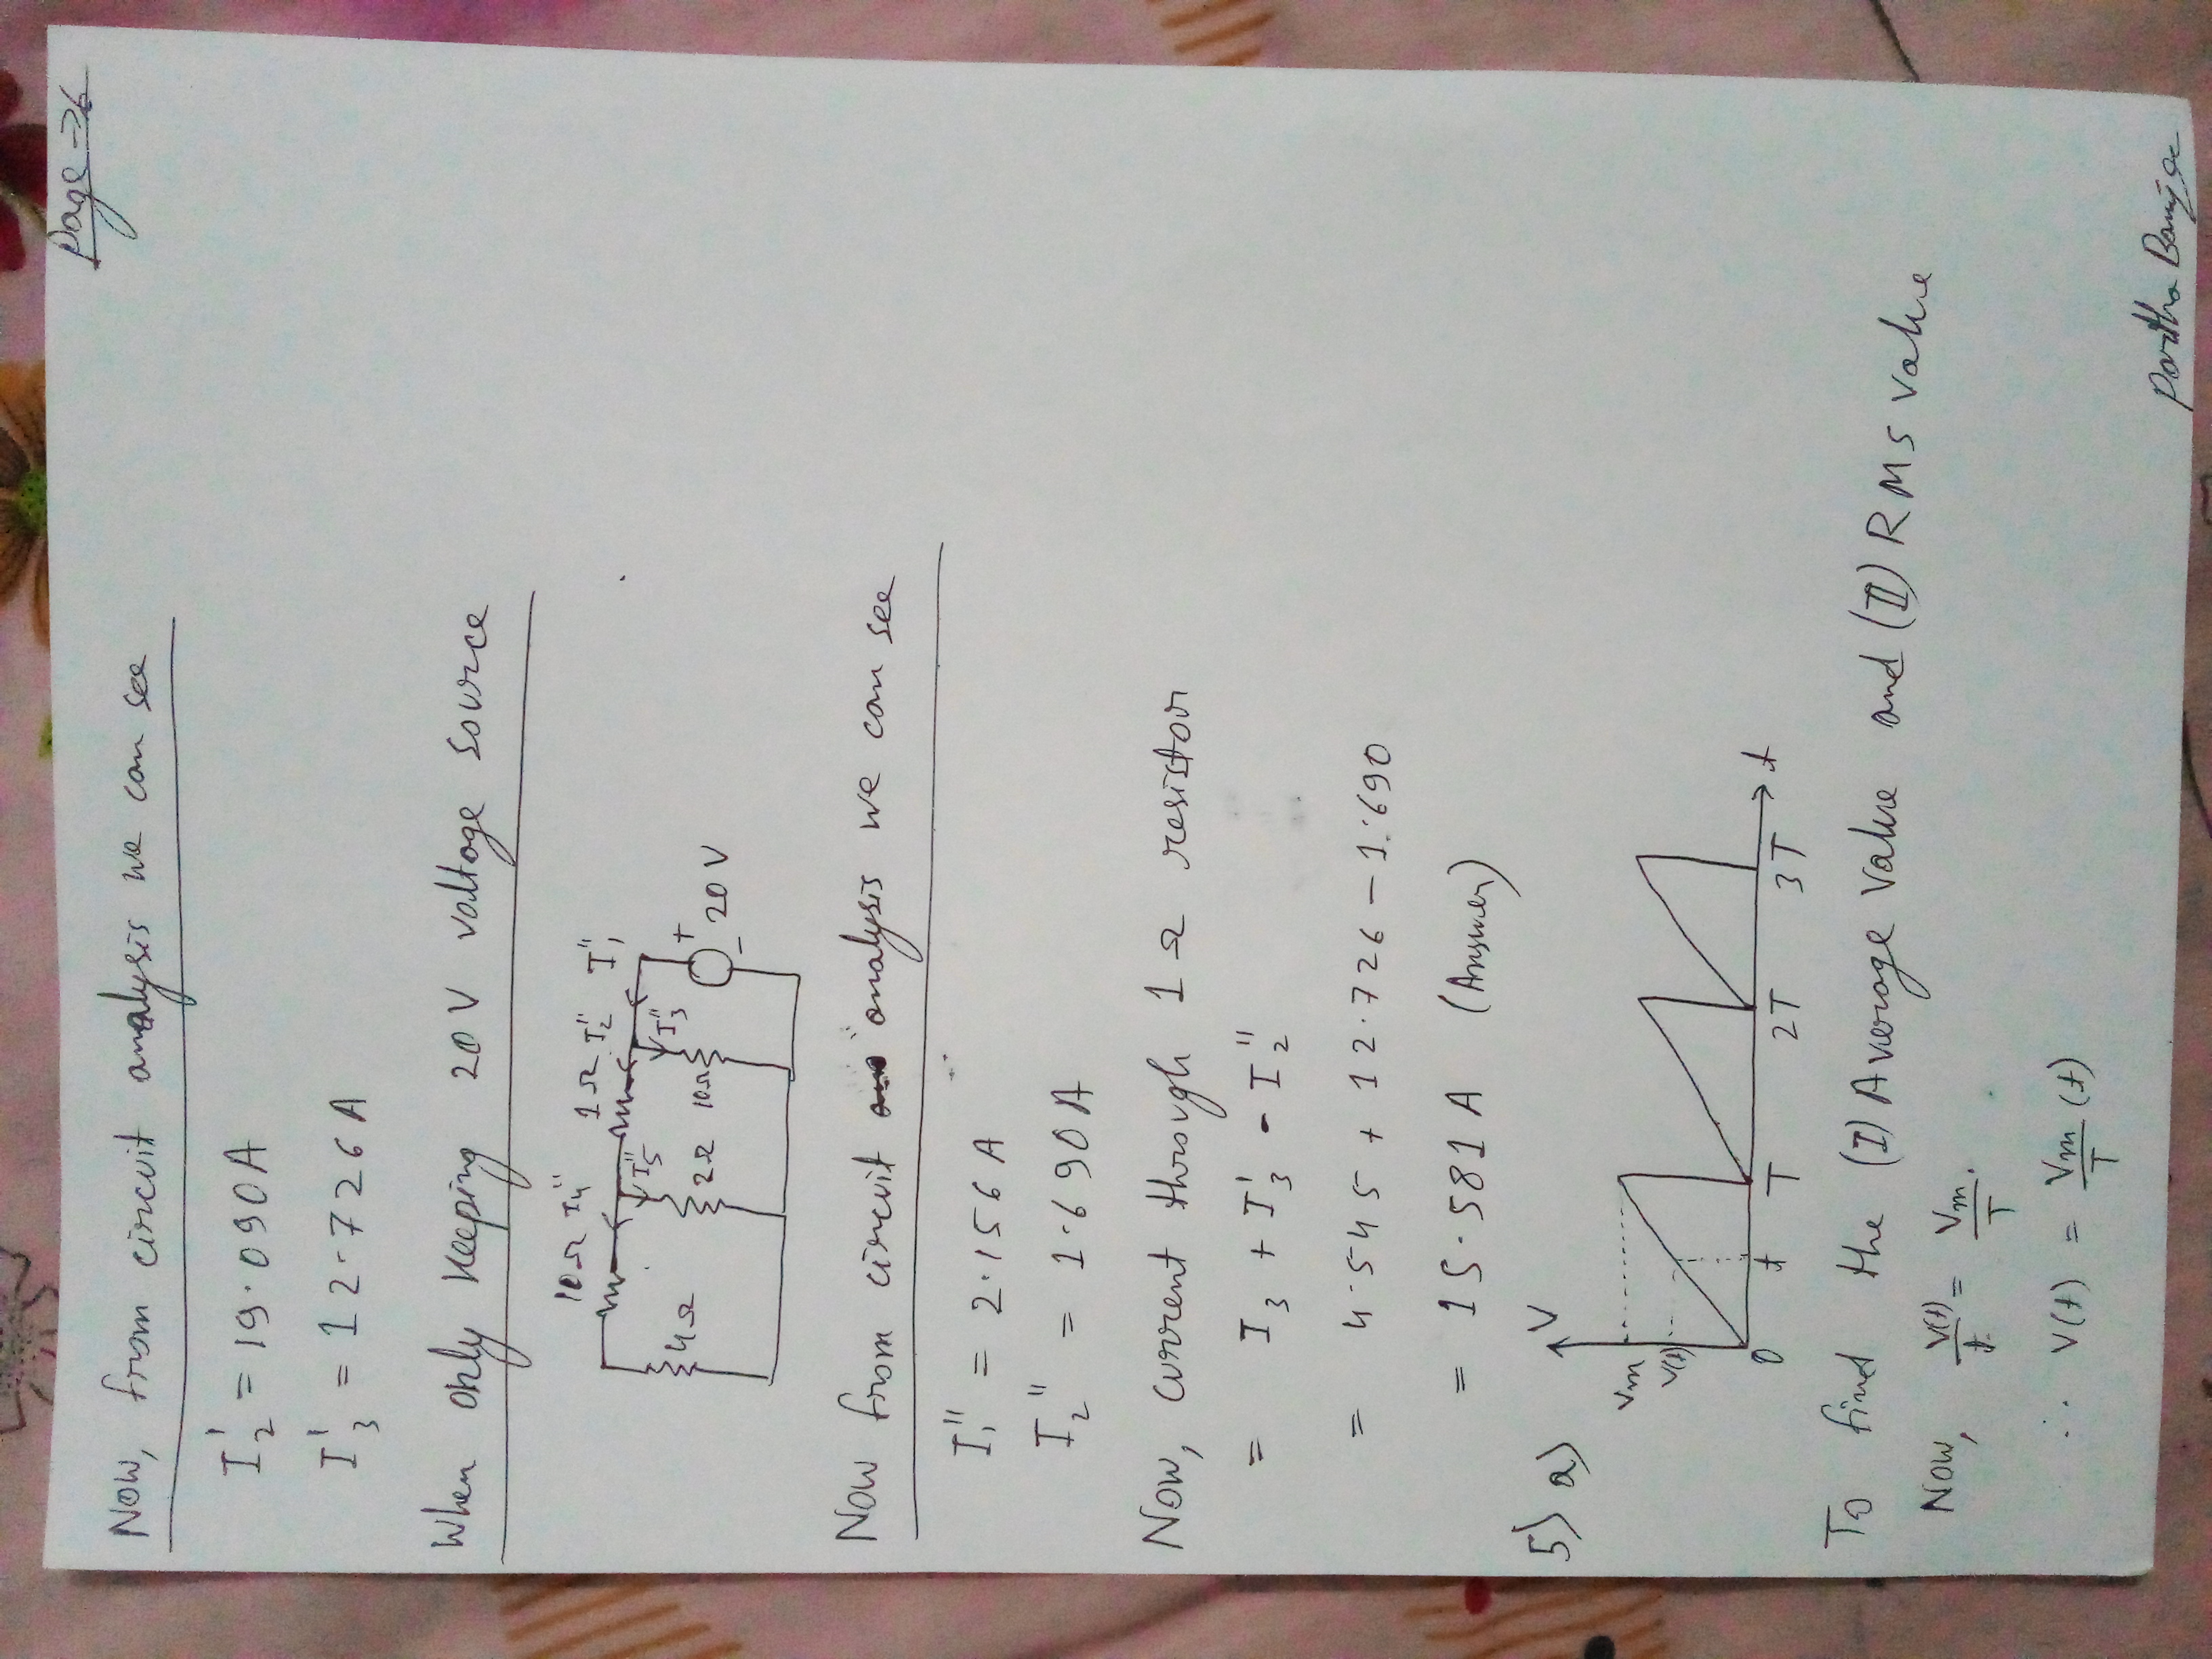 Page → 6
Now, from circuit analysis we can see
I₂' = 19.090A
I₃' = 12.726A
When only keeping 20V voltage source
10Ω I₄" 1Ω I₂" I₁"
I₅" I₃"
4Ω 2Ω 10Ω + 20V
-
Now from circuit analysis we can see
I₁" = 2.156A
I₂" = 1.690A
Now, current through 1Ω resistor
= I₃ + I₃' - I₂"
= 4.545 + 12.726 - 1.690
= 15.581A (Answer)
5) a)
V
Vm
V(t)
0 t T 2T 3T t
To find the (I) Average Value and (II) RMS value
Now, V(t)/t = Vm/T.
∴ V(t) = Vm/T (t)
Partha Banijee